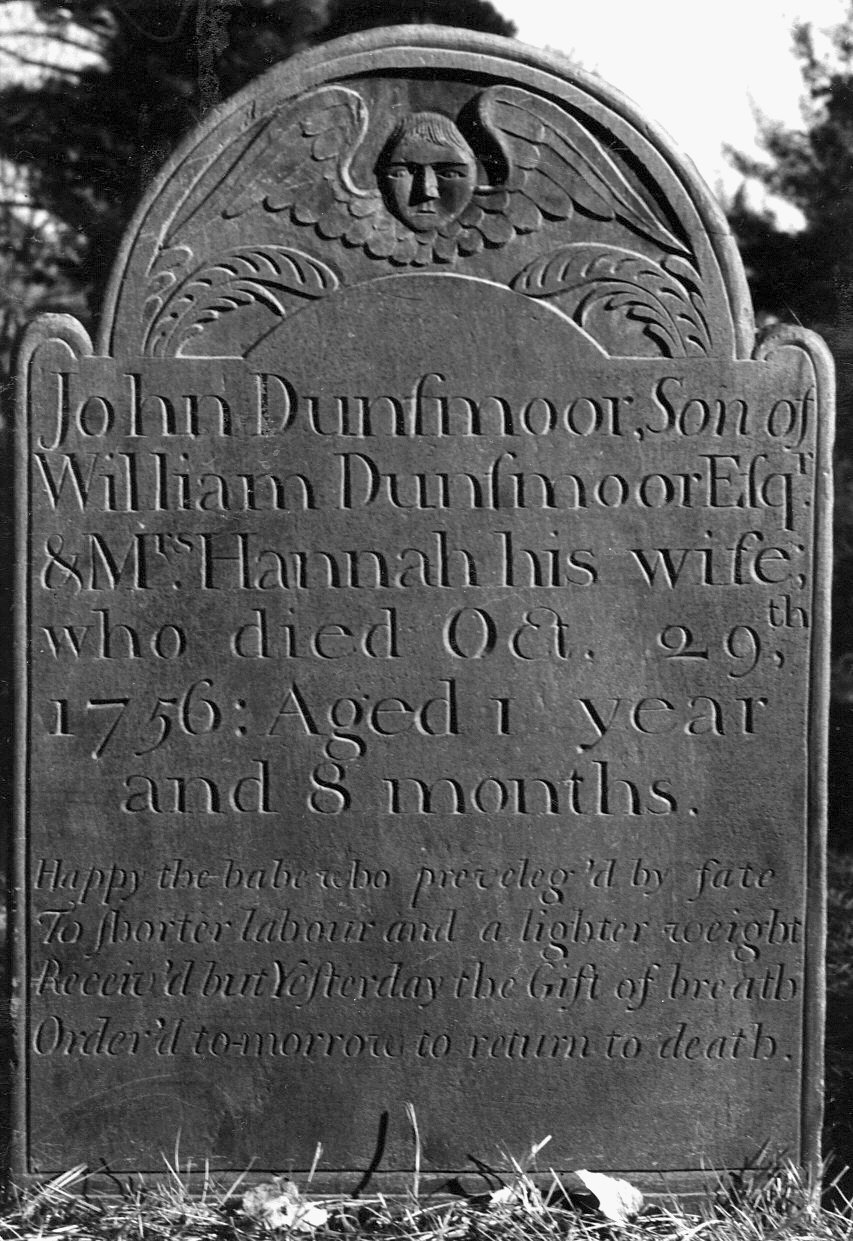 John Dunſmoor, Son of
William Dunſmoor Eſqr.
& Mrs. Hannah his wife;
who died Oct. 29th,
1756: Aged 1 year
and 8 months.
Happy the babe who preveleg'd by fate
To ſhorter labour and a lighter weight
Receiv'd but Yeſterday the Gift of breath
Order'd to-morrow to return to death.